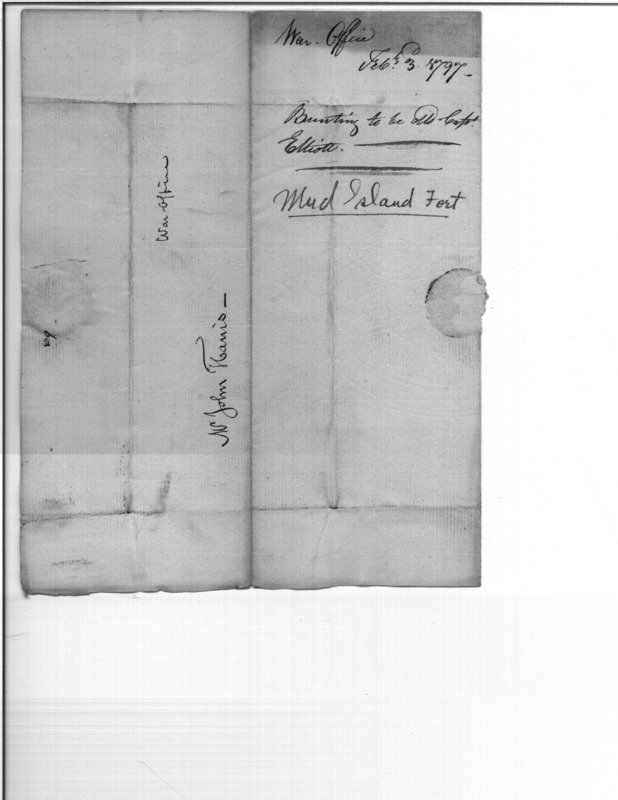 War Office
Feby. 3. 1797—
Bunting to be deld. Capt.
Elliott.
Mud Island Fort
War Office
Mr John Harris—